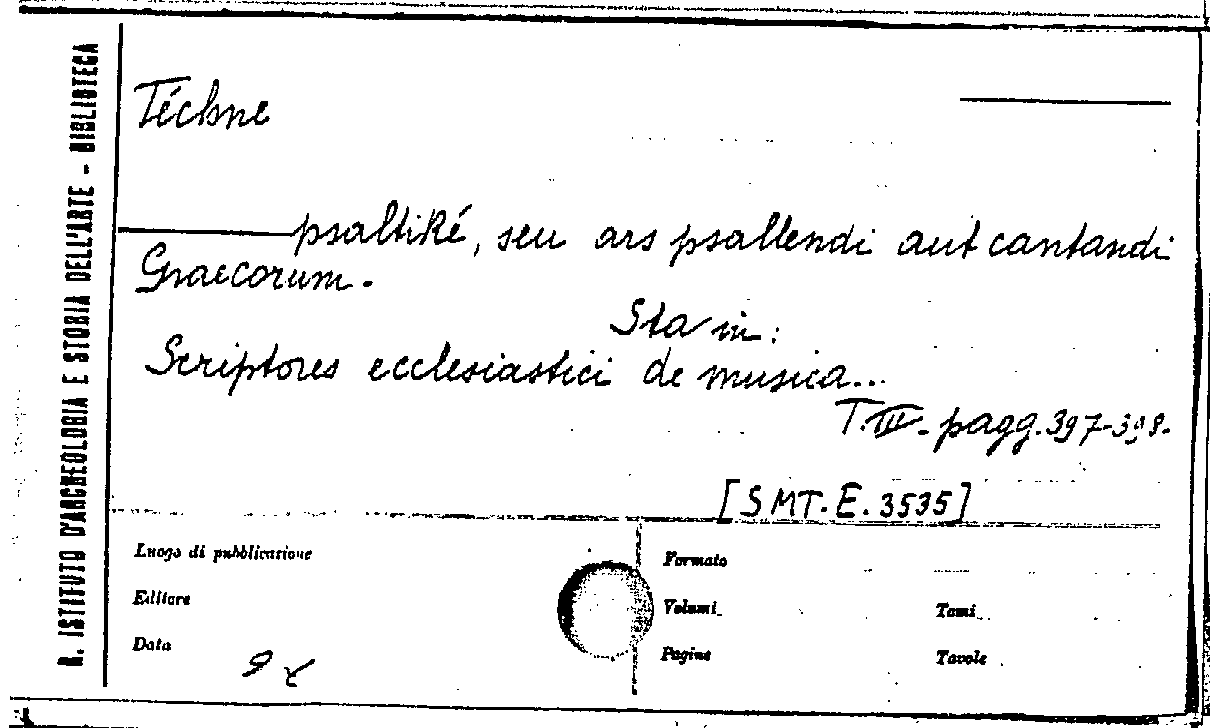 R. ISTITUTO D'ARCHEOLOGIA E STORIA DELL'ARTE - BIBLIOTECA
Téchne
psaltiké, seu ars psallendi aut cantandi
Graecorum.
Sta in:
Scriptores ecclesiastici de musica...
T. III. pagg. 397-398.
[SMT. E. 3535]
Luogo di pubblicazione
Editore
Data
Formato
Volumi
Tomi
Pagine
Tavole